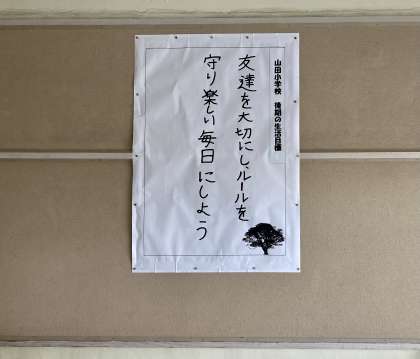 山田小学校 後期の生活目標
友達を大切にし、ルールを
守り楽しい毎日にしよう